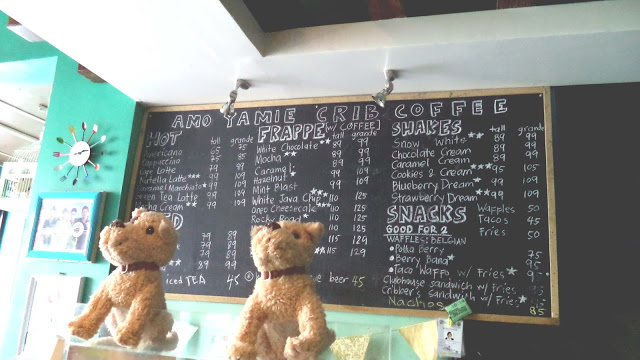 AMO YAMIE CRIB COFFEE
HOT tall grande
Americana 65 75
Cappuccino 75 89
Cafe Latte 79 99
Nutella Latte
Caramel Macchiato
Green Tea Latte
Mocha Cream
79 89
79 89
79 89
89 99
iced TEA 45
beer 45
FRAPPE [w/ COFFEE] tall grande
White Chocolate 89 99
Mocha 89 99
Caramel
Hazelnut 99 109
Mint Blast
White Java Chip 110 125
Oreo Cheesecake 110 125
Rocky Road 110 125
115 129
115 129
SHAKES tall grande
Snow White 89 99
Chocolate Cream 89 99
Caramel Cream 89 99
Cookies 2 Cream 95 105
Blueberry Dream 99 109
Strawberry Dream 99 109
SNACKS Waffles 50
Tacos 45
GOOD FOR 2 Fries 50
WAFFLES: BELGIAN
Polka Berry
Berry Bana 75
Taco Waffo w/ Fries
Clubhouse sandwich w/ Fries
Cribber's Sandwich w/ Fries
Nachos 85